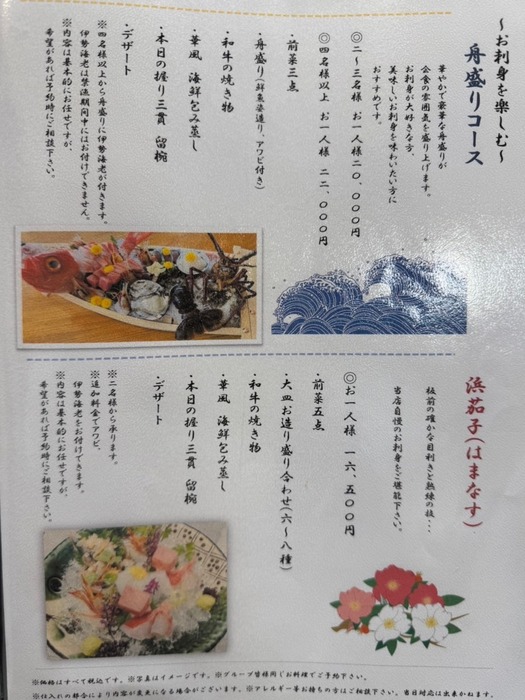 ～お刺身を楽しむ～
舟盛りコース
華やかで豪華な舟盛りが
会食の雰囲気を盛り上げます。
お刺身が大好きな方、
美味しいお刺身を味わいたい方に
おすすめです。
◎二～三名様 お一人様 二〇、〇〇〇円
◎四名様以上 お一人様 二二、〇〇〇円
・前菜三点
・舟盛り(鮮魚姿造り、アワビ付き)
・和牛の焼き物
・華風 海鮮包み蒸し
・本日の握り三貫 留椀
・デザート
※四名様以上から舟盛りに伊勢海老が付きます。
伊勢海老は禁漁期間中にはお付けできません。
※内容は基本的にお任せですが、
希望があれば予約時にご相談下さい。
浜茄子(はまなす)
板前の確かな目利きと熟練の技…
当店自慢のお刺身をご堪能下さい。
◎お一人様 一六、五〇〇円
・前菜五点
・大皿お造り盛り合わせ(六～八種)
・和牛の焼き物
・華風 海鮮包み蒸し
・本日の握り三貫 留椀
・デザート
※二名様から承ります。
※追加料金でアワビ、
伊勢海老をお付けできます。
※内容は基本的にお任せですが、
希望があれば予約時にご相談下さい。
※価格はすべて税込です。※写真はイメージです。※グループ皆様同じお料理でご予約下さい。
※仕入れの都合により内容が変更になる場合がございます。※アレルギー等お持ちの方はご相談下さい。当日対応は出来かねます。